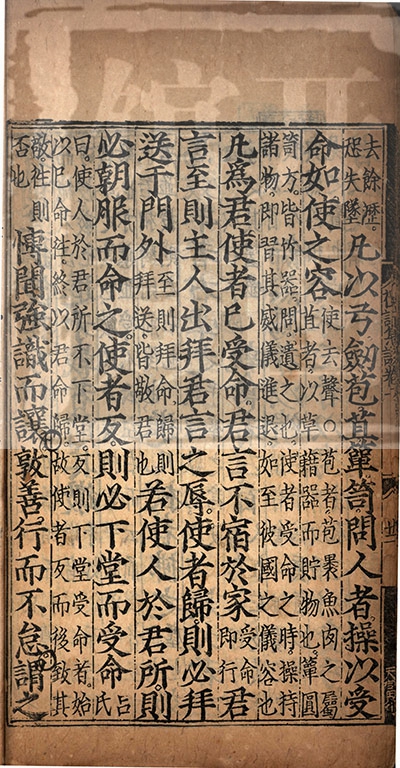 去餘瀝。
恐失墜
凡以弓劍苞苴簞笥問人者。操以受
命如使之容
使去聲○苞者苞裹魚肉之屬
苴者以草藉器而貯物也。簞圓
笥方。皆竹器。問遺之也。使者受命之時。操持
諸物即習其威儀進退。如至彼國之儀容也
凡為君使者已受命。君言不宿於家
受命
即行
君
言至則主人出拜君言之辱。使者歸。則必拜
送于門外
至則拜命。歸則
拜送。皆敬君也
若使人於君所。則
必朝服而命之。使者反。則必下堂而受命
呂
氏
曰。使人於君所不下堂。反則下堂受命者。始
以己命往。終以君命歸。故使者反而後致其
敬。往則
否也
博聞強識而讓。敦善行而不怠。謂之